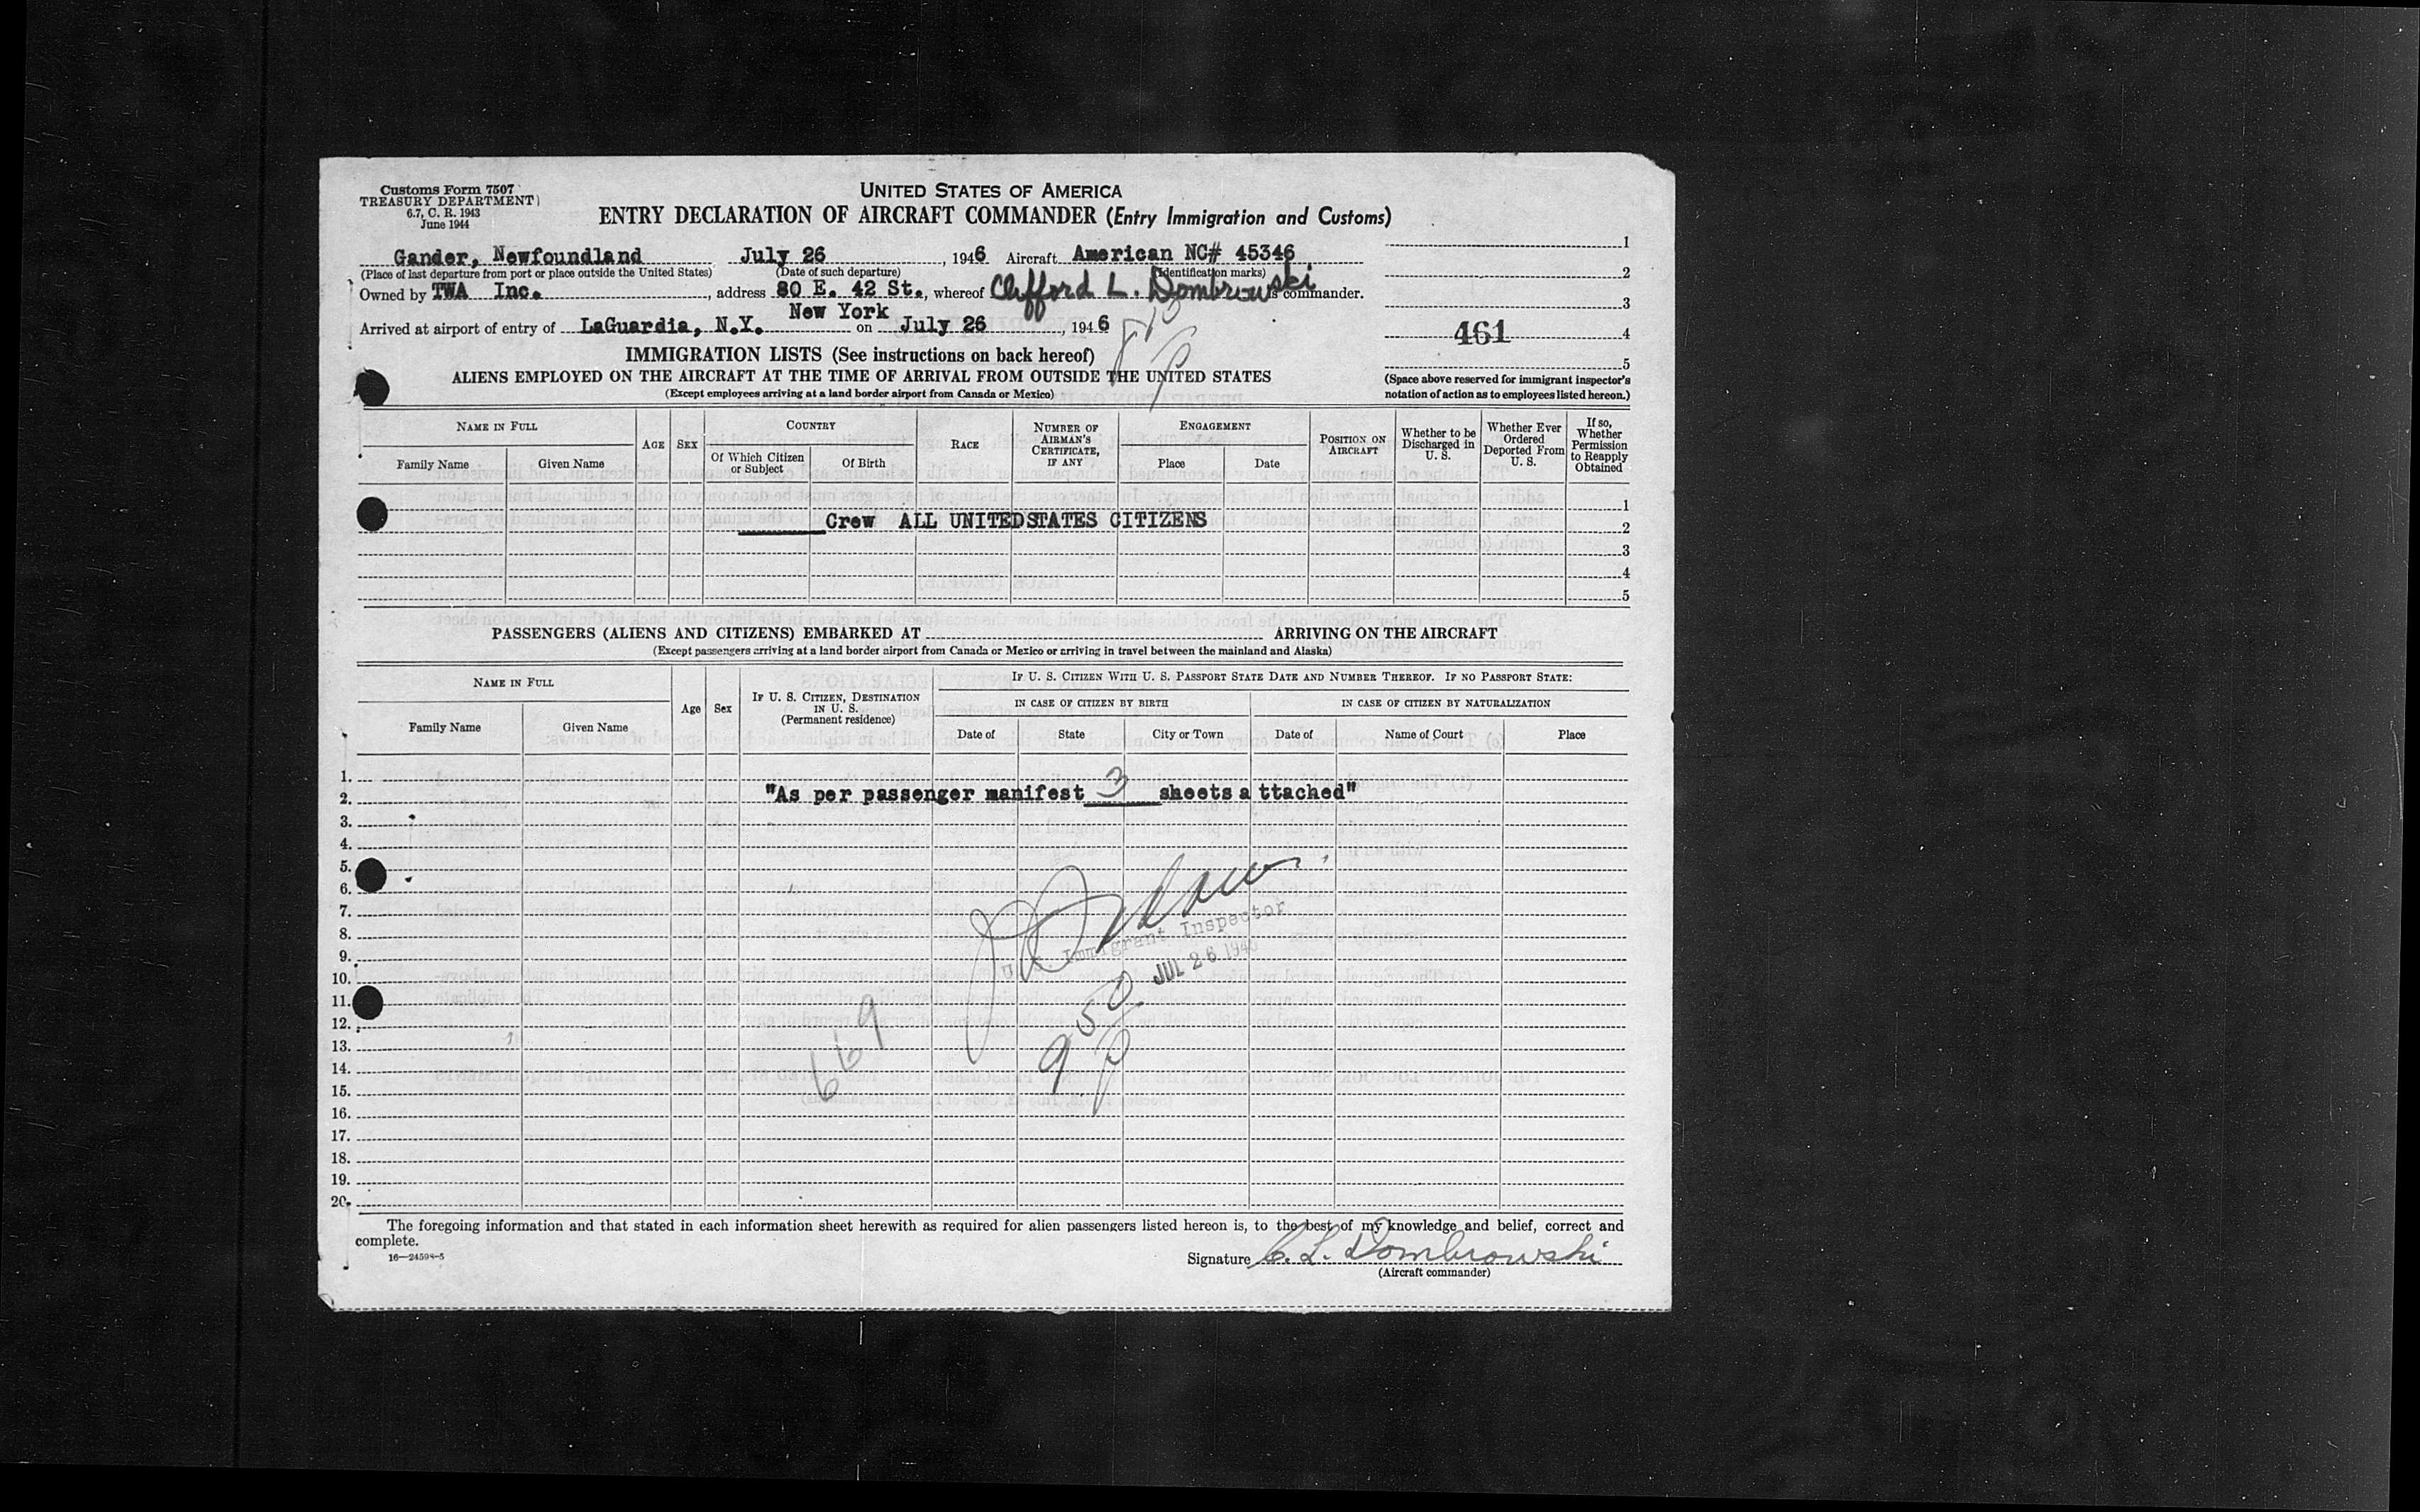 Customs Form 7507
TREASURY DEPARTMENT
6.7, C. R. 1943
June 1944
UNITED STATES OF AMERICA
ENTRY DECLARATION OF AIRCRAFT COMMANDER (Entry Immigration and Customs)
Gander, Newfoundland July 26, 1946 Aircraft American NC# 45346
(Place of last departure from port or place outside the United States) (Date of such departure) (Identification marks)
Owned by TWA Inc., address 80 E. 42 St., whereof Clifford L. Dombrowski is commander.
New York
Arrived at airport of entry of LaGuardia, N.Y. on July 26, 1946
1
2
3
461 4
5
(Space above reserved for immigrant inspector's notation of action as to employees listed hereon.)
IMMIGRATION LISTS (See instructions on back hereof)
ALIENS EMPLOYED ON THE AIRCRAFT AT THE TIME OF ARRIVAL FROM OUTSIDE THE UNITED STATES
(Except employees arriving at a land border airport from Canada or Mexico)
NAME IN FULL
Family Name Given Name
AGE SEX
COUNTRY
Of Which Citizen or Subject Of Birth
RACE
NUMBER OF AIRMAN'S CERTIFICATE, IF ANY
ENGAGEMENT
Place Date
POSITION ON AIRCRAFT
Whether to be Discharged in U. S.
Whether Ever Ordered Deported From U. S.
If so, Whether Permission to Reapply Obtained
1
Crew ALL UNITEDSTATES CITIZENS 2
3
4
5
PASSENGERS (ALIENS AND CITIZENS) EMBARKED AT ARRIVING ON THE AIRCRAFT
(Except passengers arriving at a land border airport from Canada or Mexico or arriving in travel between the mainland and Alaska)
NAME IN FULL
Family Name Given Name
Age Sex
IF U. S. CITIZEN, DESTINATION IN U. S.
(Permanent residence)
IF U. S. CITIZEN WITH U. S. PASSPORT STATE DATE AND NUMBER THEREOF. IF NO PASSPORT STATE:
IN CASE OF CITIZEN BY BIRTH IN CASE OF CITIZEN BY NATURALIZATION
Date of State City or Town Date of Name of Court Place
1.
2. "As per passenger manifest 3 sheets a ttached"
3.
4.
5.
6.
7.
8. Immigrant Inspector
9. JUL 26 1946
10.
11. 950
12.
13. 669
14. P
15.
16.
17.
18.
19.
20.
The foregoing information and that stated in each information sheet herewith as required for alien passengers listed hereon is, to the best of my knowledge and belief, correct and
complete.
16—24598-5
Signature C. L. Dombrowski
(Aircraft commander)